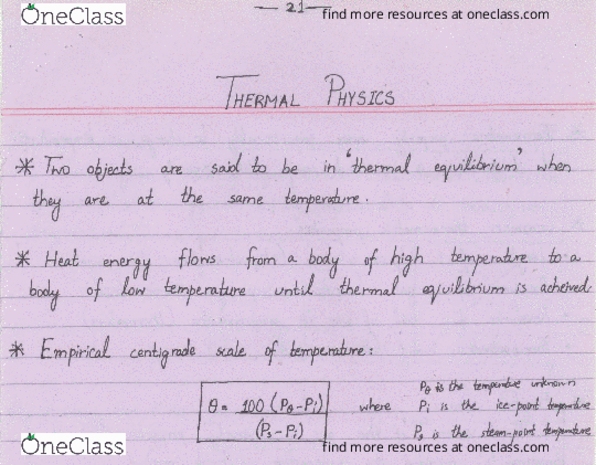 OneClass
— 21 —
find more resources at oneclass.com
THERMAL PHYSICS
* Two objects are said to be in 'thermal equilibrium' when
they are at the same temperature.
* Heat energy flows from a body of high temperature to a
body of low temperature until thermal equilibrium is acheived.
* Empirical centigrade scale of temperature:
θ = 100 (Pθ - Pi)
(Ps - Pi)
where
Pθ is the temperature unknown
Pi is the ice-point temperature
Ps is the steam-point temperature
OneClass
find more resources at oneclass.com